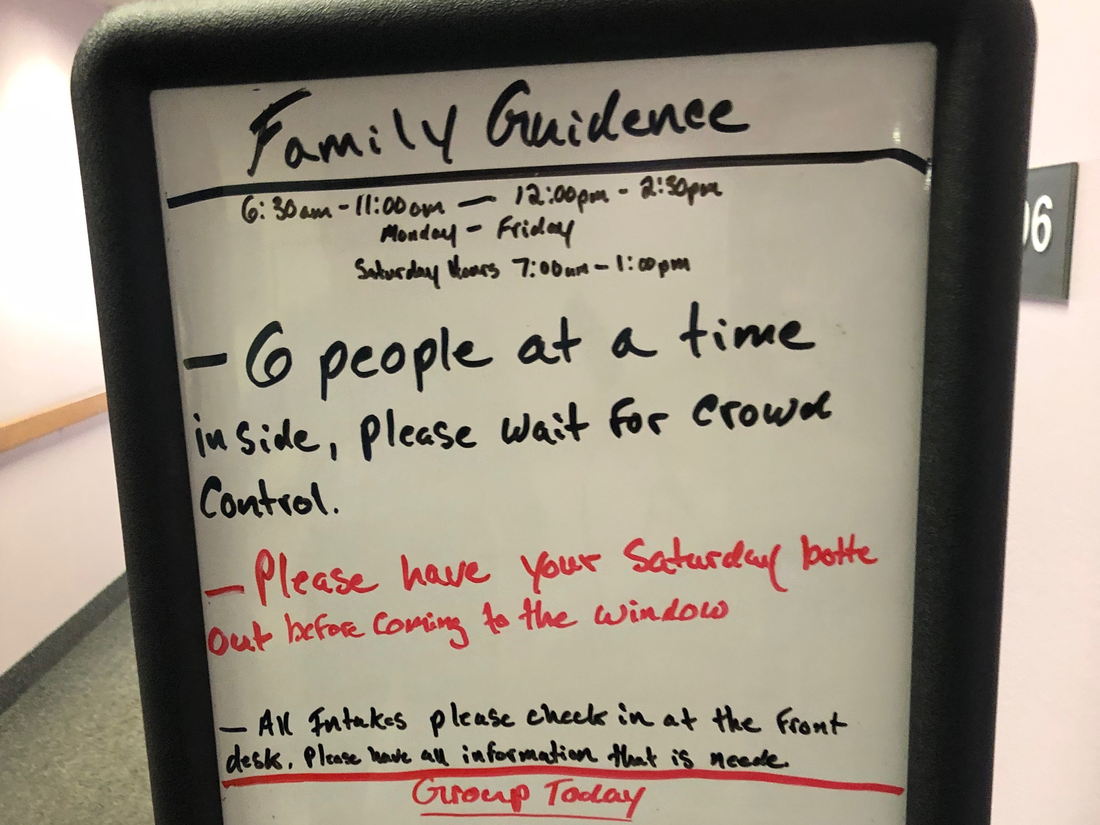 Family Guidence
6:30am - 11:00am — 12:00pm - 2:30pm
Monday - Friday
Saturday Hours 7:00am - 1:00pm
- 6 people at a time
inside, please wait for crowd
Control.
- Please have your Saturday botte
out before coming to the window
- All Intakes please check in at the front
desk. Please have all information that is neede.
Group Today
06